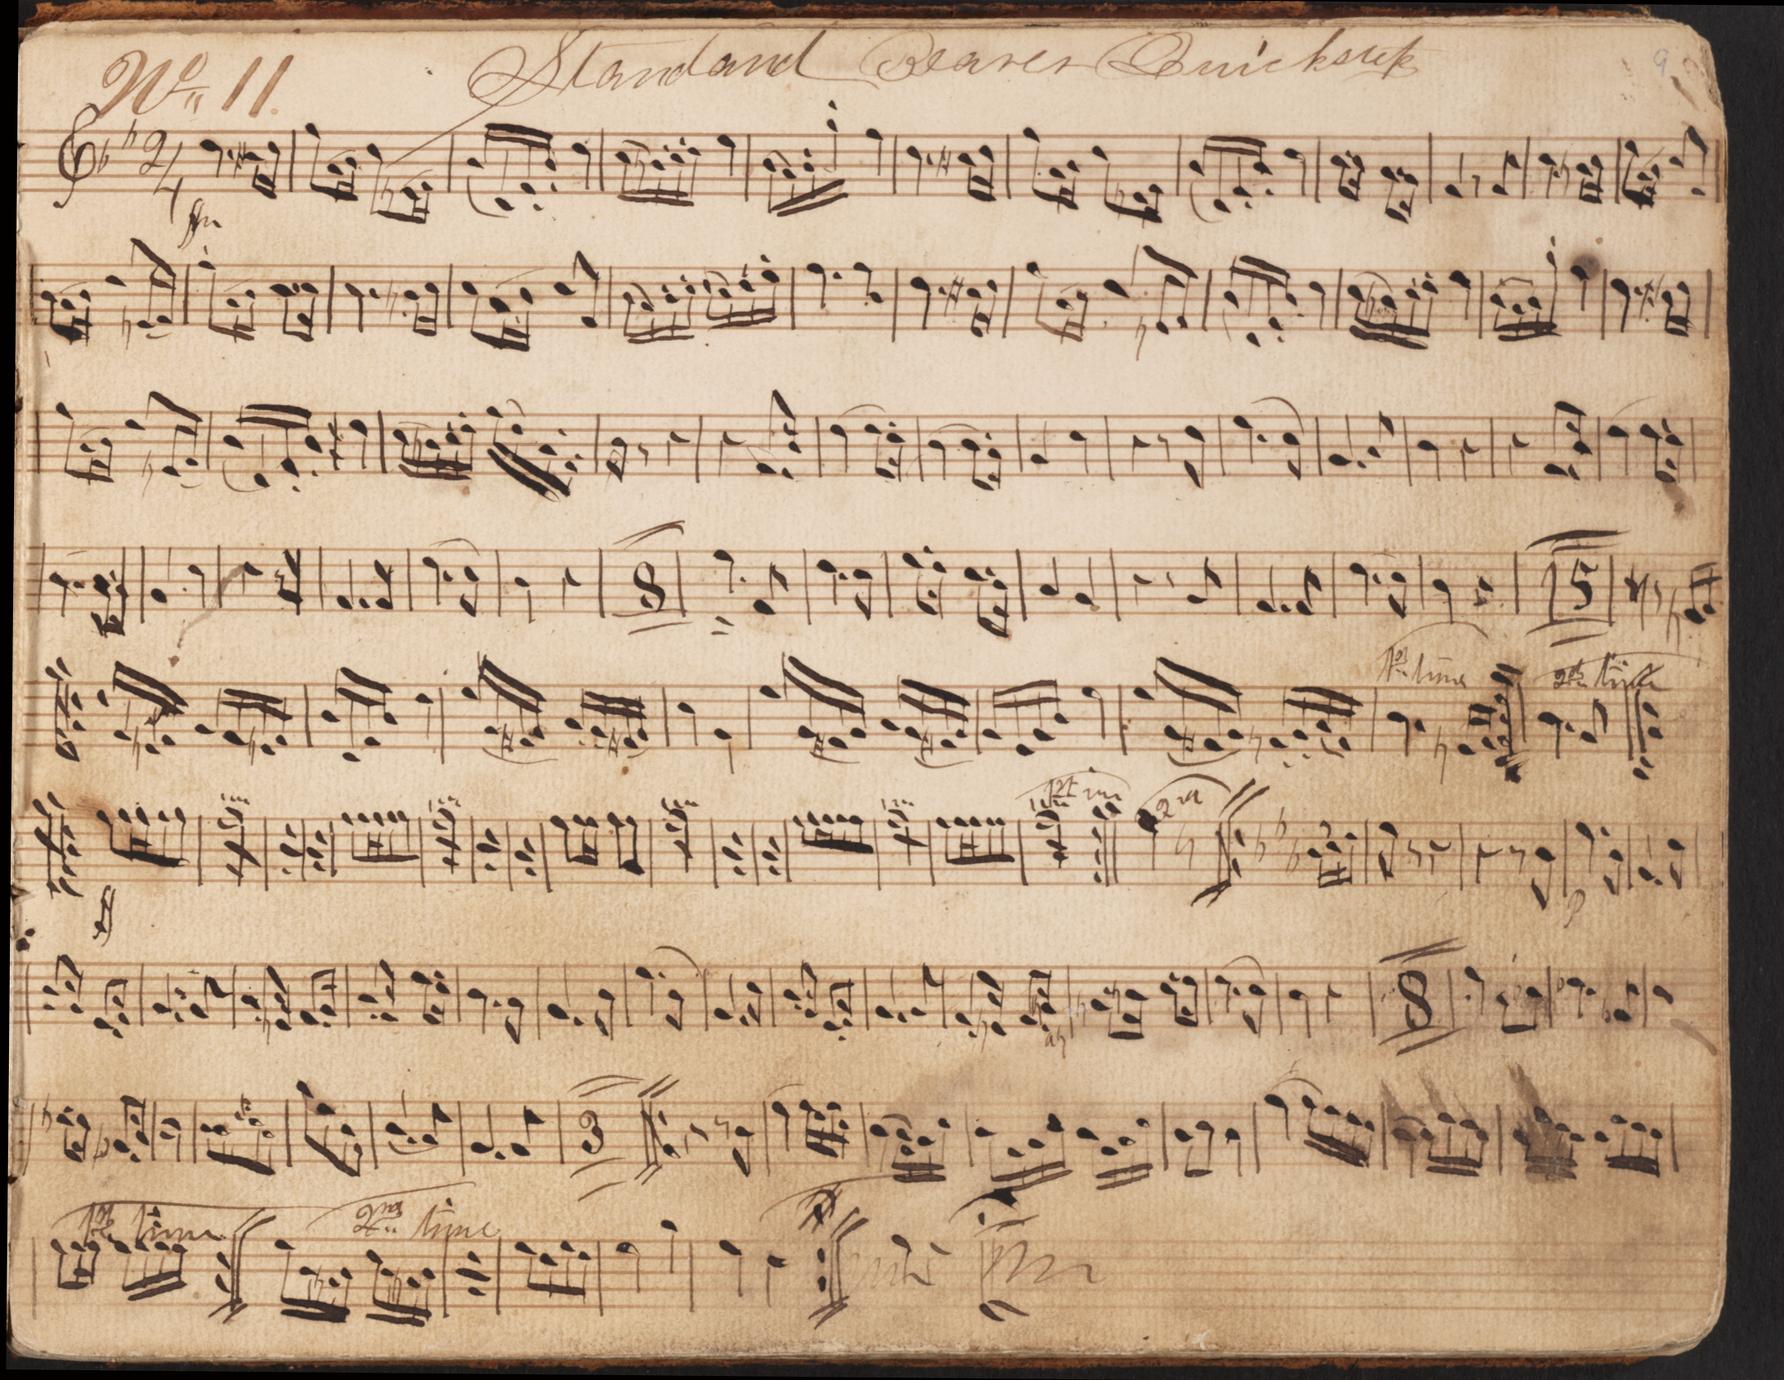 No 11 Standard Bearer Quickstep 9
2/4
8 15
1st time 2nd time
1st 2nd
p
8
3
1st time 2nd time